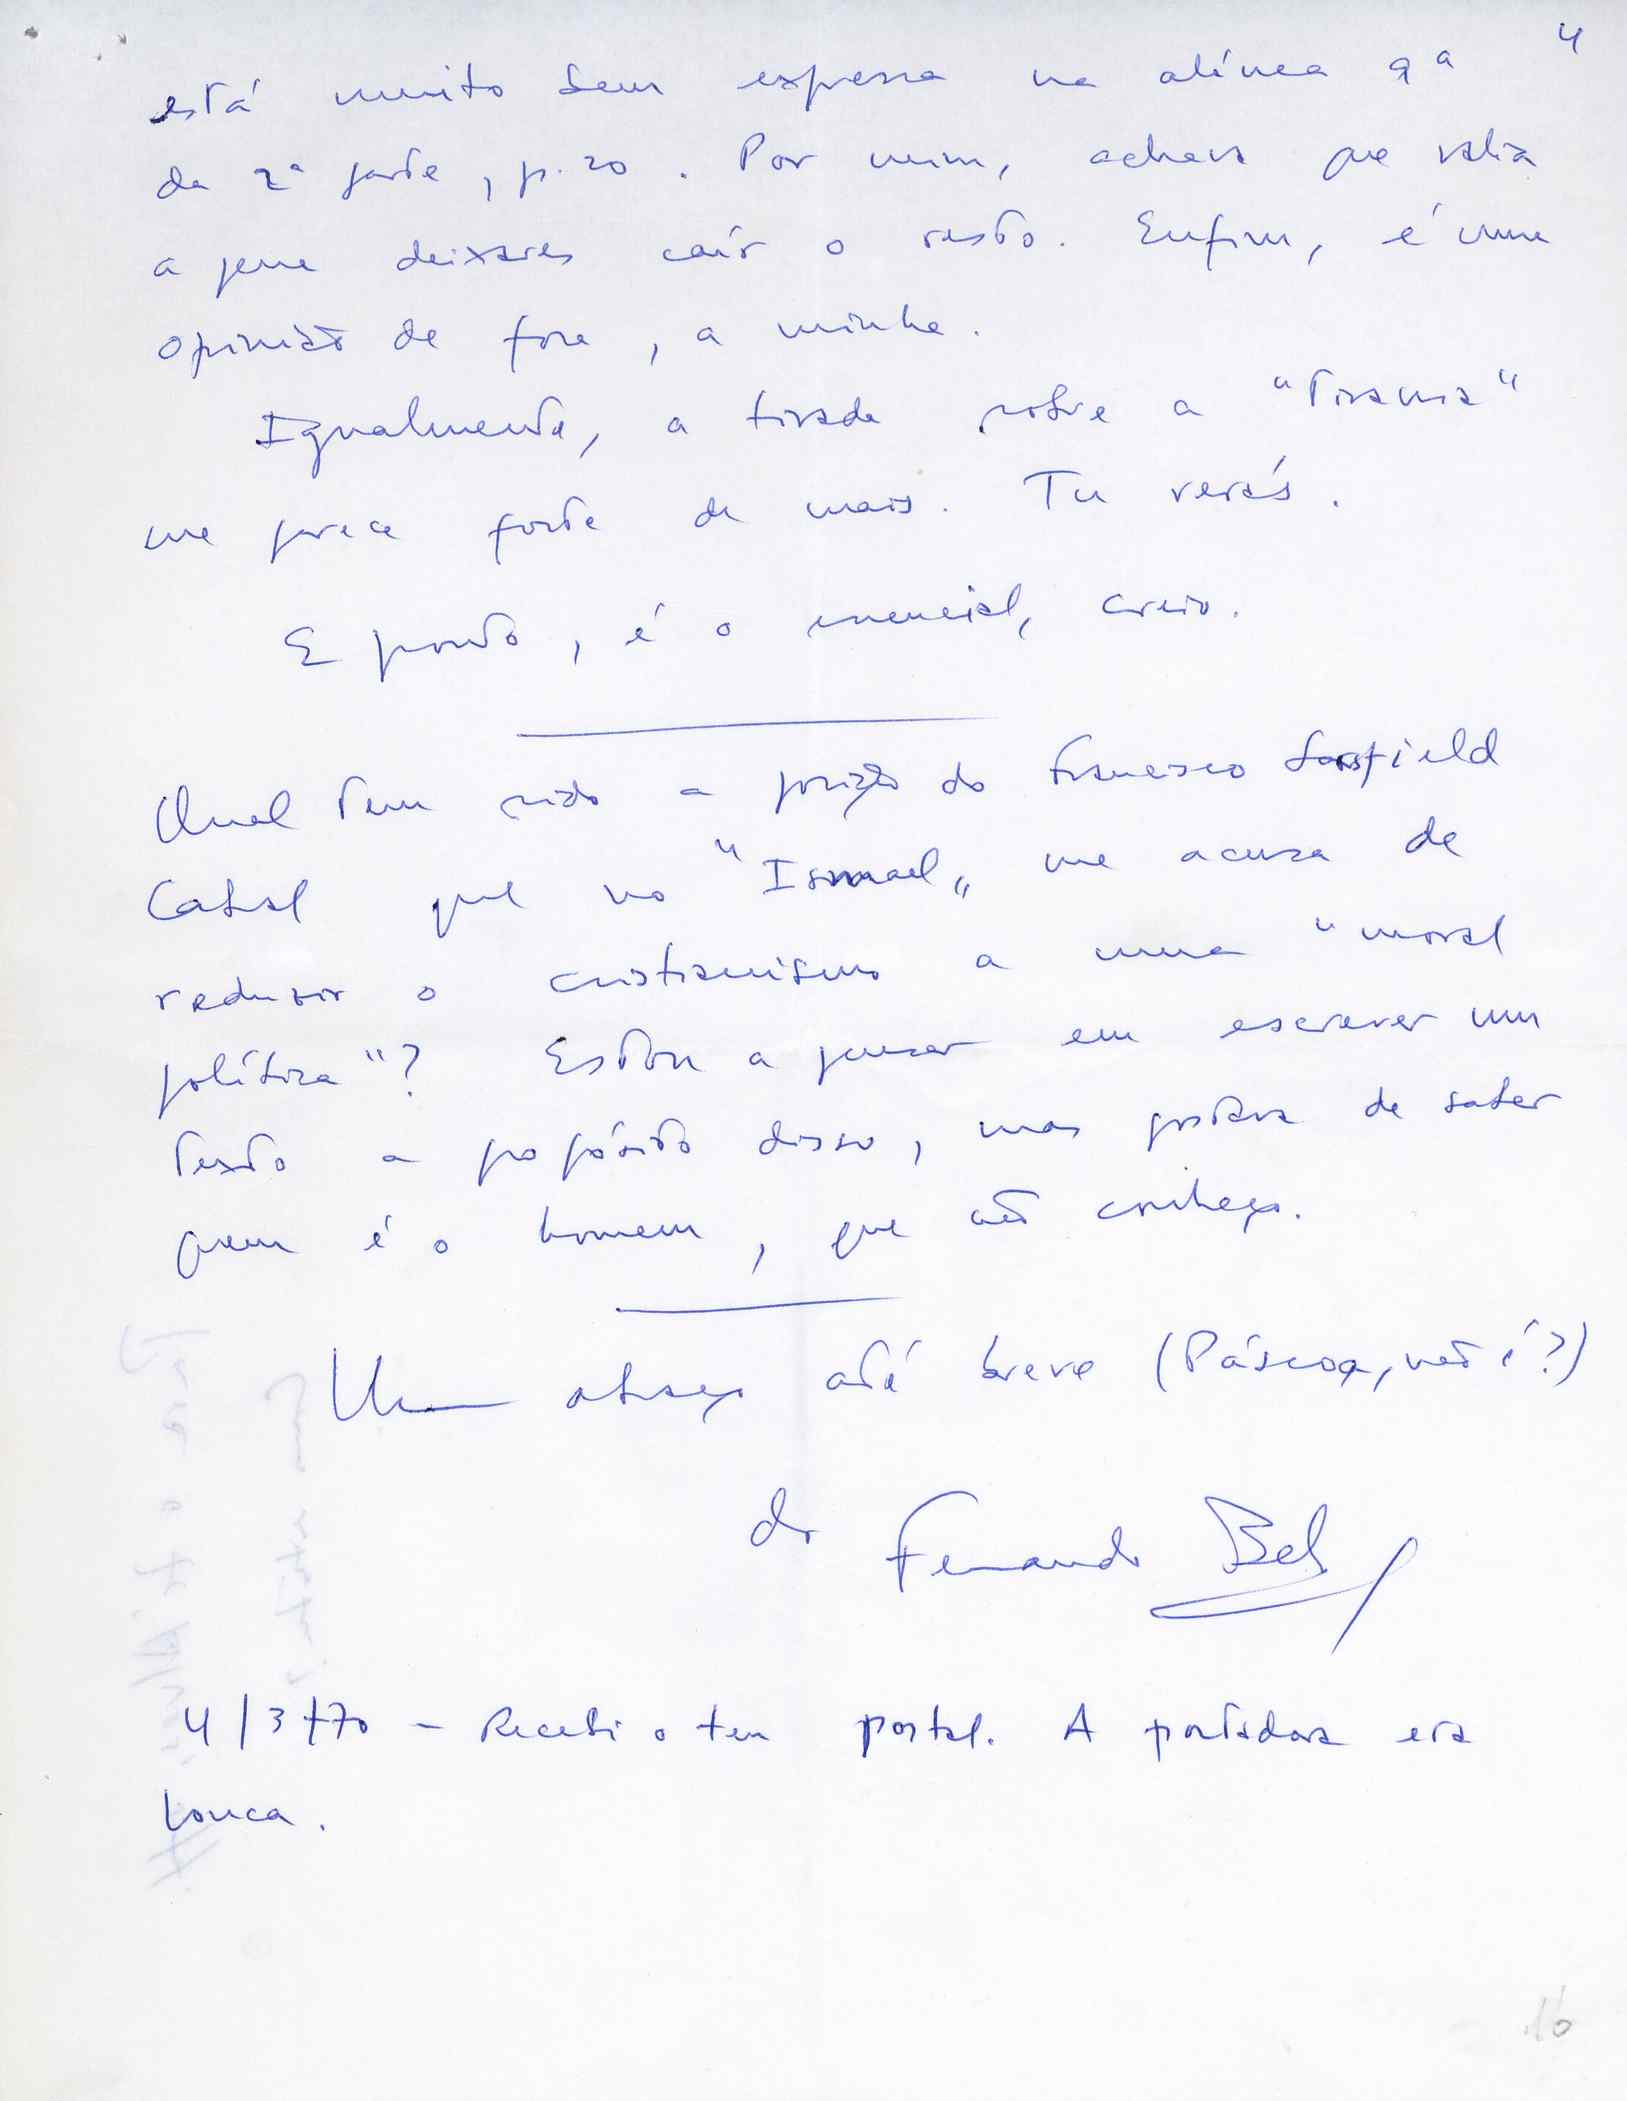 4
está muito bem expressa na alínea 9ª
da 2ª parte, p. 20. Por mim, achava que valia
a pena deixares cair o resto. Enfim, é uma
opinião de fora, a minha.
Igualmente, a tirada sobre a "tirania"
me parece forte de mais. Tu verás.
E pronto, é o essencial, creio.
Qual tem sido a posição do Francisco Sarsfield
Cabral que no "Ismael" me acusa de
reduzir o cristianismo a uma "moral
política"? Estou a pensar em escrever um
texto a propósito disso, mas gostava de saber
quem é o homem, que não conheço.
Um abraço até breve (Páscoa, não é?)
do Fernando Belo
4/3/70 - Recebi o teu postal. A portadora era
louca.
16